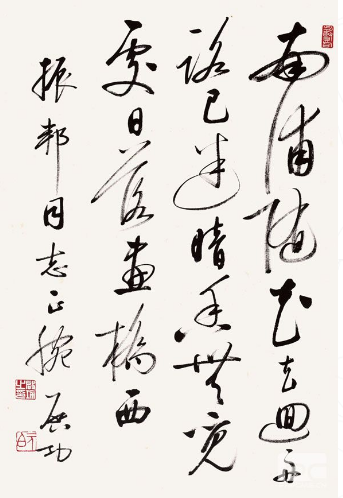 南浦随花去迴舟
路已迷暗香無覓
處日落畫橋西
振邦同志正腕 启功